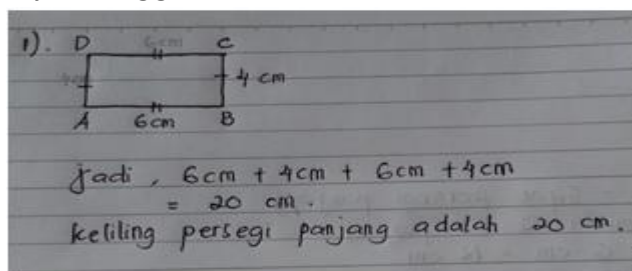 1). D 6cm C
4 cm
A 6cm B
Jadi, 6cm + 4cm + 6cm + 4cm
= 20 cm.
Keliling persegi panjang adalah 20 cm.